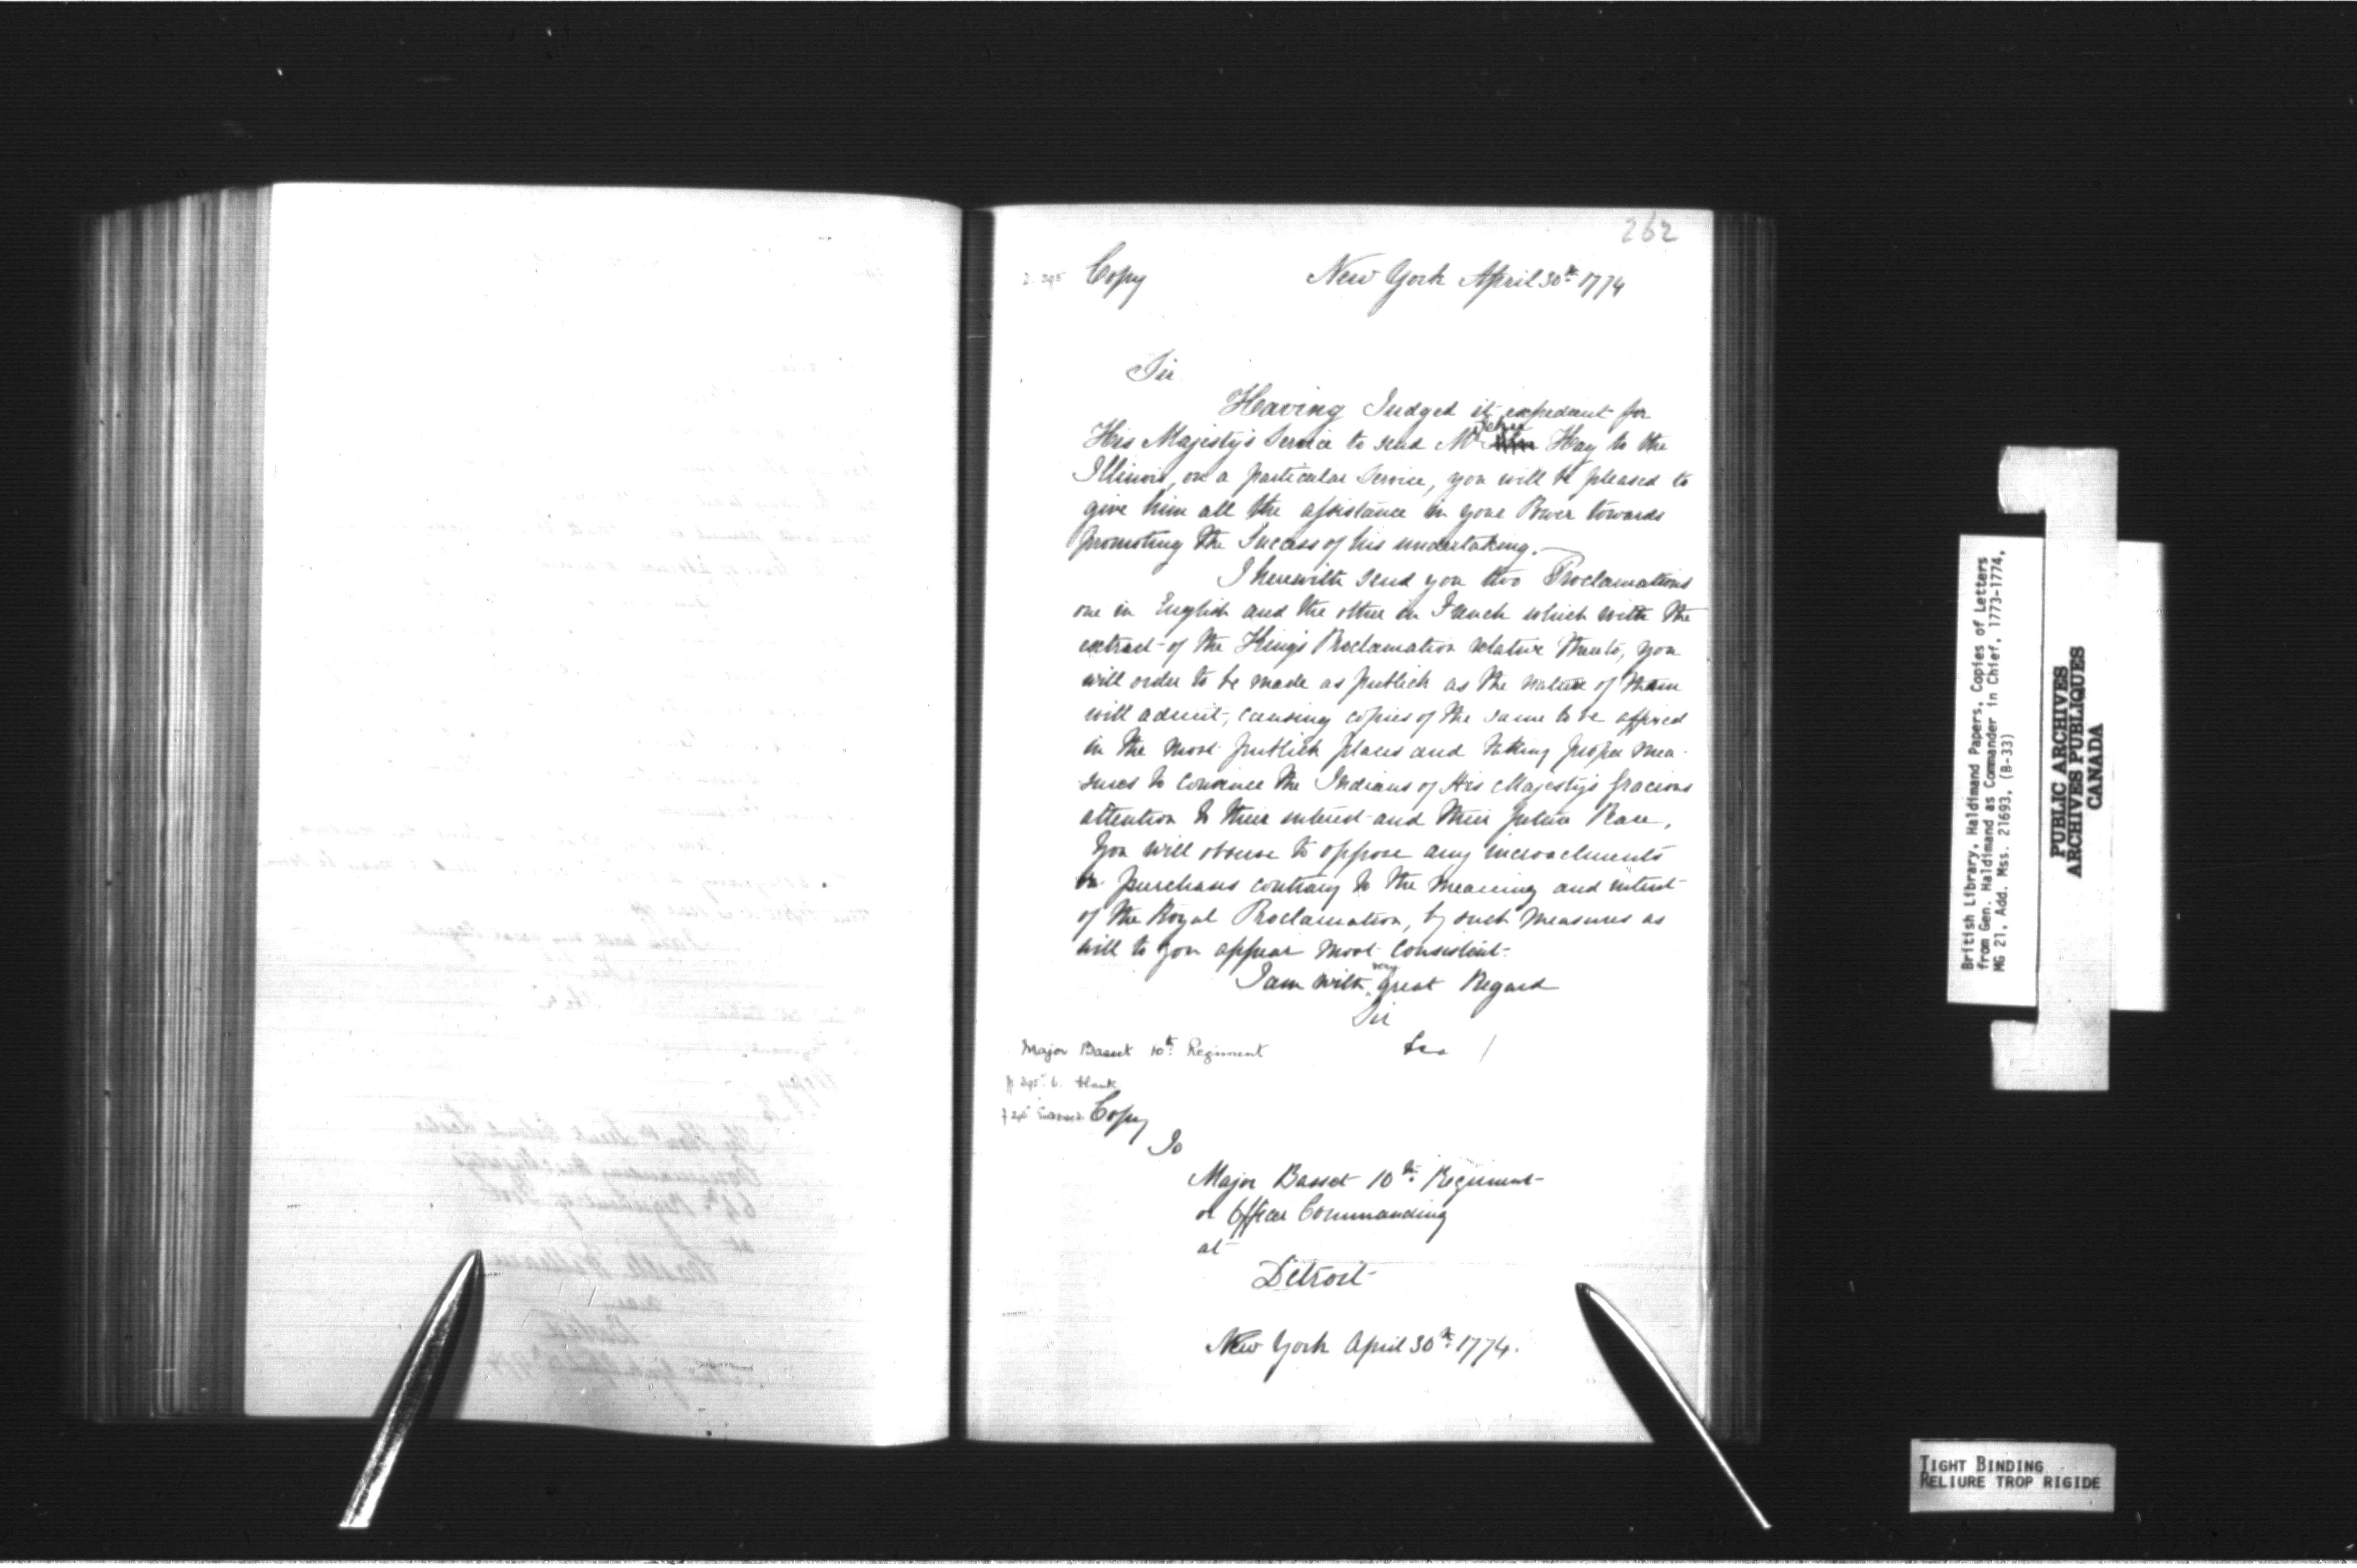 262
Copy New York April 30th 1774
Sir
Having Judged it expedient for
His Majesty's Service to send Mr Jehu Hay to the
Illinois, on a particular Service, you will be pleased to
give him all the assistance in your Power towards
promoting the Success of his undertaking.
I herewith send you two Proclamations
one in English and the other in French which with the
extract of the King's Proclamation relative thereto, you
will order to be made as publick as the nature of them
will admit, causing copies of the same to be affixed
in the most publick places and taking proper mea-
sures to convince the Indians of His Majesty's Gracious
attention to their interest and their future Peace,
You will observe to oppose any incroachments
or purchases contrary to the meaning and intent
of the Royal Proclamation, by such measures as
will to you appear most consistent.
I am with very great Regard
Sir
&ca
Major Basset 10th Regiment
blank
Copy
To
Major Basset 10th Regiment
or Officer Commanding
at
Detroit
New York April 30th 1774.
British Library, Haldimand Papers, Copies of Letters
from Gen. Haldimand as Commander in Chief, 1773-1774,
MG 21, Add. Mss. 21693, (B-33)
PUBLIC ARCHIVES
ARCHIVES PUBLIQUES
CANADA
TIGHT BINDING
RELIURE TROP RIGIDE